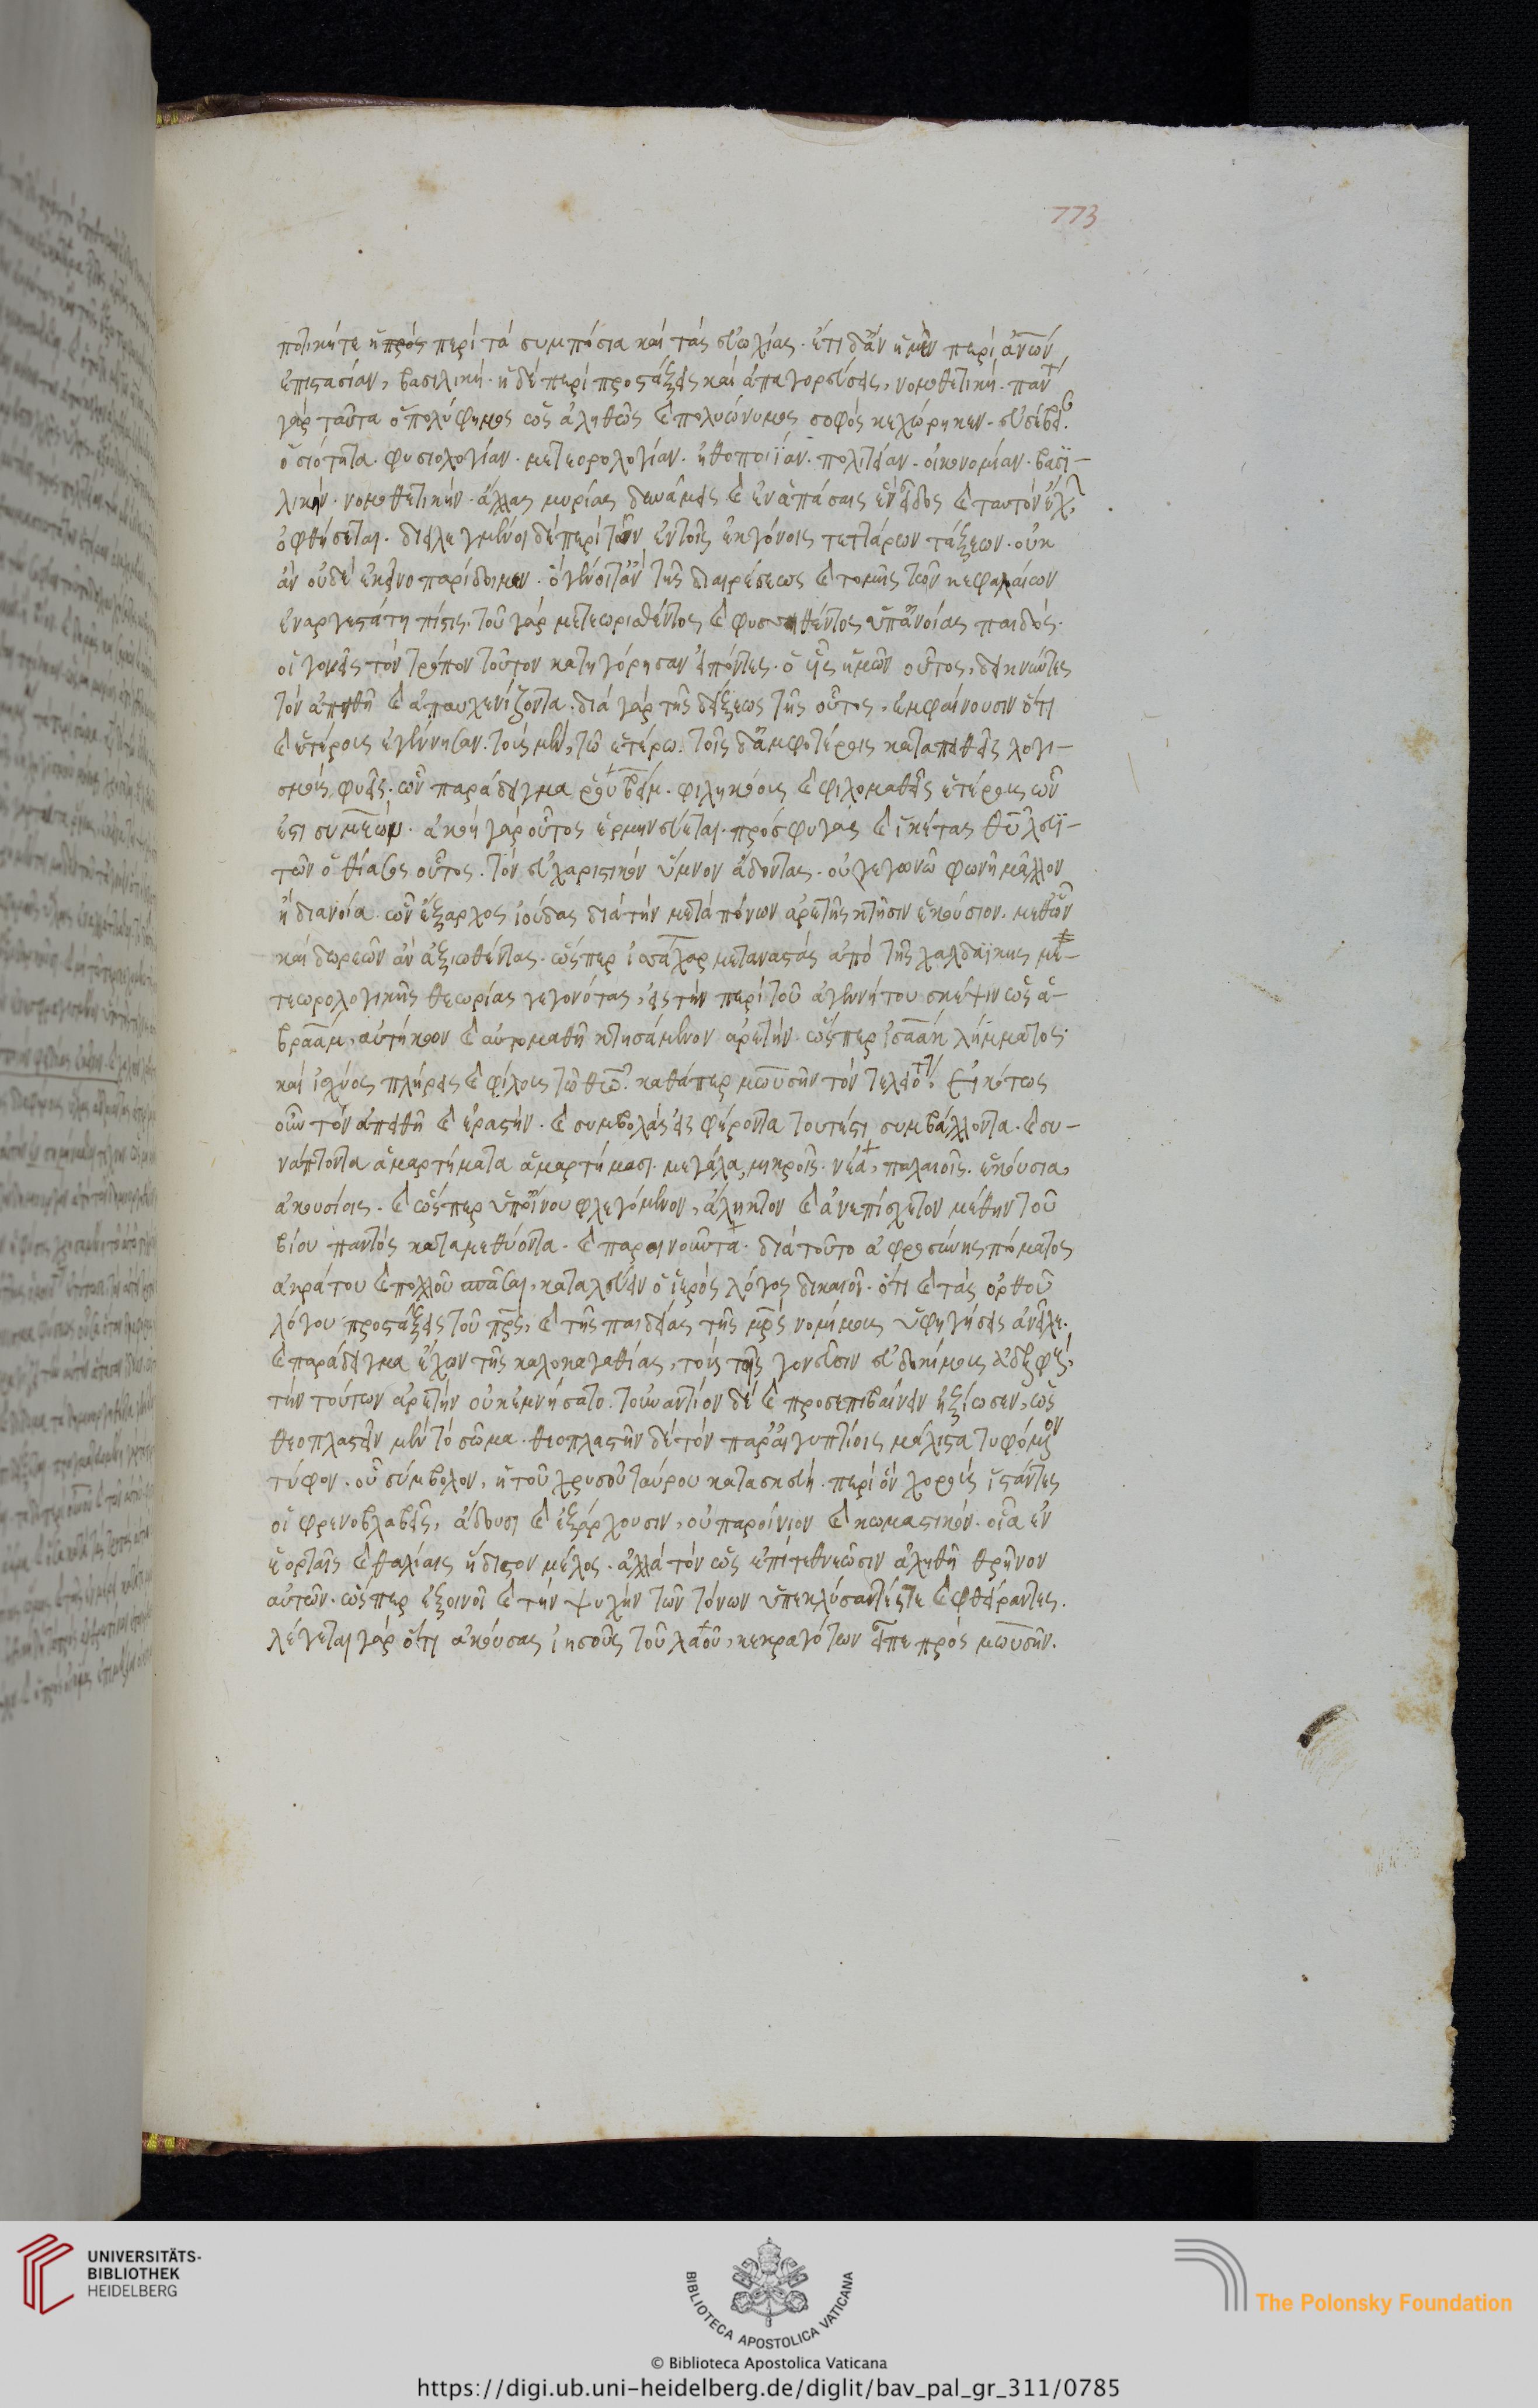 773
ποτικήτε ἡ πρός περί τά συμπόσια καί τάς εὐωχίας. ἔτι δἄν ἡ μὲν περί ἀν̅ων
ἐπιστασίαν, βασιλική. ἡ δέ περί προστάξεις καί ἀπαγορεύσεις, νομοθετική. πάντα
γάρ ταῦτα ὁ πολύφημος ὡς ἀληθῶς καὶ πολυώνυμος σοφός κεχώρηκεν. εὐσέβειαν.
ὁσιότητα. φυσιολογίαν. μετεορολογίαν. ἠθοποιΐαν. πολιτείαν. οἰκονομίαν. βασι-
λικήν. νομοθετικήν. ἄλλας μυρίας δυνάμεις καὶ ἐν ἁπάσαις ἓν εἶδος καὶ ταυτόν ἔχων
ὀφθήσεται. διειλεγμένοι δέ περί τῶν ἐν τοῖς ἐκγόνοις τεττάρων τάξεων. οὐκ
ἄν οὐδέ ἐκεῖνο παρίδοιμεν. ὃ γένοιτἄν τῆς διαιρέσεως καὶ τομῆς τῶν κεφαλαίων
ἐναργεστάτη πίστις. τοῦ γάρ μετεωρισθέντος καὶ φυσηθέντος ὑπἀνοίας παιδός.
οἱ γονεῖς τόν τρόπον τοῦτον κατηγόρησαν εἰπόντες. ὁ υἱὸς ἡμῶν οὗτος, δεικνύντες
τόν ἀπειθῆ καὶ ἀπαυχενίζοντα. διά γάρ τῆς δείξεως τῆς οὗτος, ἐμφαίνουσιν ὅτι
καὶ ἑτέρους ἐγέννησαν. τούς μέν, τῶ ἑτέρω. τοῖς δἀμφοτέροις καταπειθεῖς λογι-
σμούς εὐφυεῖς. ὧν παράδειγμα ῥουβείμ. φιληκόους καὶ φιλομαθεῖς ἑτέρους ὧν
ἐστι συμεών. ἀκοή γάρ οὗτος ἑρμηνεύεται. πρόσφυγας καὶ ἱκέτας θ̅υ̅ λευϊ-
τῶν ὁ θίασος οὗτος. τόν εὐχαριστικόν ὕμνον ἄδοντας. οὐ γεγωνῶ φωνῆ μᾶλλον
ἢ διανοία. ὧν ἔξαρχος ἰούδας διά τήν μετά πόνων ἀρετῆς κτῆσιν ἑκούσιον. μεθὧν
καί δωρεῶν ἀν ἀξιωθέντας. ὥσπερ ἰσσάχαρ μεταναστάς ἀπό τῆς χαλδαϊκῆς με-
τεωρολογικῆς θεωρίας γεγονότας, εἰς τήν περί τοῦ ἀγεννήτου σκέψιν ὡς ἀ-
βραάμ, αὐτήκοον καὶ αὐτομαθῆ κτησάμενον ἀρετήν. ὥσπερ ἰσαάκ λήμματος
καί ἰσχύος πλήρεις καὶ φίλους τῶ θεῶ. καθάπερ μωυσῆν τόν τελειότατον. Εἰκότως
οὖν τόν ἀπειθῆ καὶ ἐραστήν. καὶ συμβολάς εἰσφέροντα τουτέστι συμβάλλοντα. καὶ συ-
νάπτοντα ἁμαρτήματα ἁμαρτήμασι. μεγάλα, μικροῖς. νέα, παλαιοῖς. ἑκούσια,
ἀκουσίοις. καὶ ὥσπερ ὑποἴνου φλεγόμενον, ἄληκτον καὶ ἀνεπίσχετον μέθην τοῦ
βίου παντός καταμεθύοντα. καὶ παροινοῦντα. διά τοῦτο ἀφροσύνης πόματος
ἀκράτου καὶ πολλοῦ σπᾶσαι, καταλεύειν ὁ ἱερός λόγος δικαιοῖ. ὅτι καὶ τάς ὀρθοῦ
λόγου προστάξεις τοῦ π̅ρ̅ς, καὶ τῆς παιδείας τῆς μ̅ρ̅ς νομίμους ὑφηγήσεις ἀνεῖλε.
καὶ παράδειγμα ἔχων τῆς καλοκαγαθίας, τούς τοῖς γονεῦσιν εὐδοκίμους ἀδελφούς,
τήν τούτων ἀρετήν οὐκ ἐμιμήσατο. τοὐναντίον δέ καὶ προσεπιβαίνειν ἠξίωσεν, ὡς
θεοπλαστεῖν μέν τό σῶμα. θεοπλαστεῖν δέ τόν παρἀιγυπτίοις μάλιστα τιμώμενον
τύφον. οὗ σύμβολον, ἡ τοῦ χρυσοῦ ταύρου κατασκευή. περί ὅν χορούς ἱστάντες
οἱ φρενοβλαβεῖς, ἄδουσι καὶ ἐξάρχουσιν, οὐ παροίνιον καὶ κωμαστικόν. οἷα ἐν
ἑορταῖς καὶ θαλίαις ἥδιστον μέλος. ἀλλά τόν ὡς ἐπί τεθνεῶσιν ἀληθῆ θρῆνον
αὐτῶν. ὥσπερ ἔξοινοι καὶ τήν ψυχήν τῶν τόνων ὑπεκλύσαντές τε καὶ φθείραντες.
λέγεται γάρ ὅτι ἀκούσας ἰησοῦς τοῦ λαοῦ, κεκραγότων εἶπε πρός μωυσῆν.
UNIVERSITÄTS-
BIBLIOTHEK
HEIDELBERG
BIBLIOTECA APOSTOLICA VATICANA
The Polonsky Foundation
© Biblioteca Apostolica Vaticana
https://digi.ub.uni-heidelberg.de/diglit/bav_pal_gr_311/0785